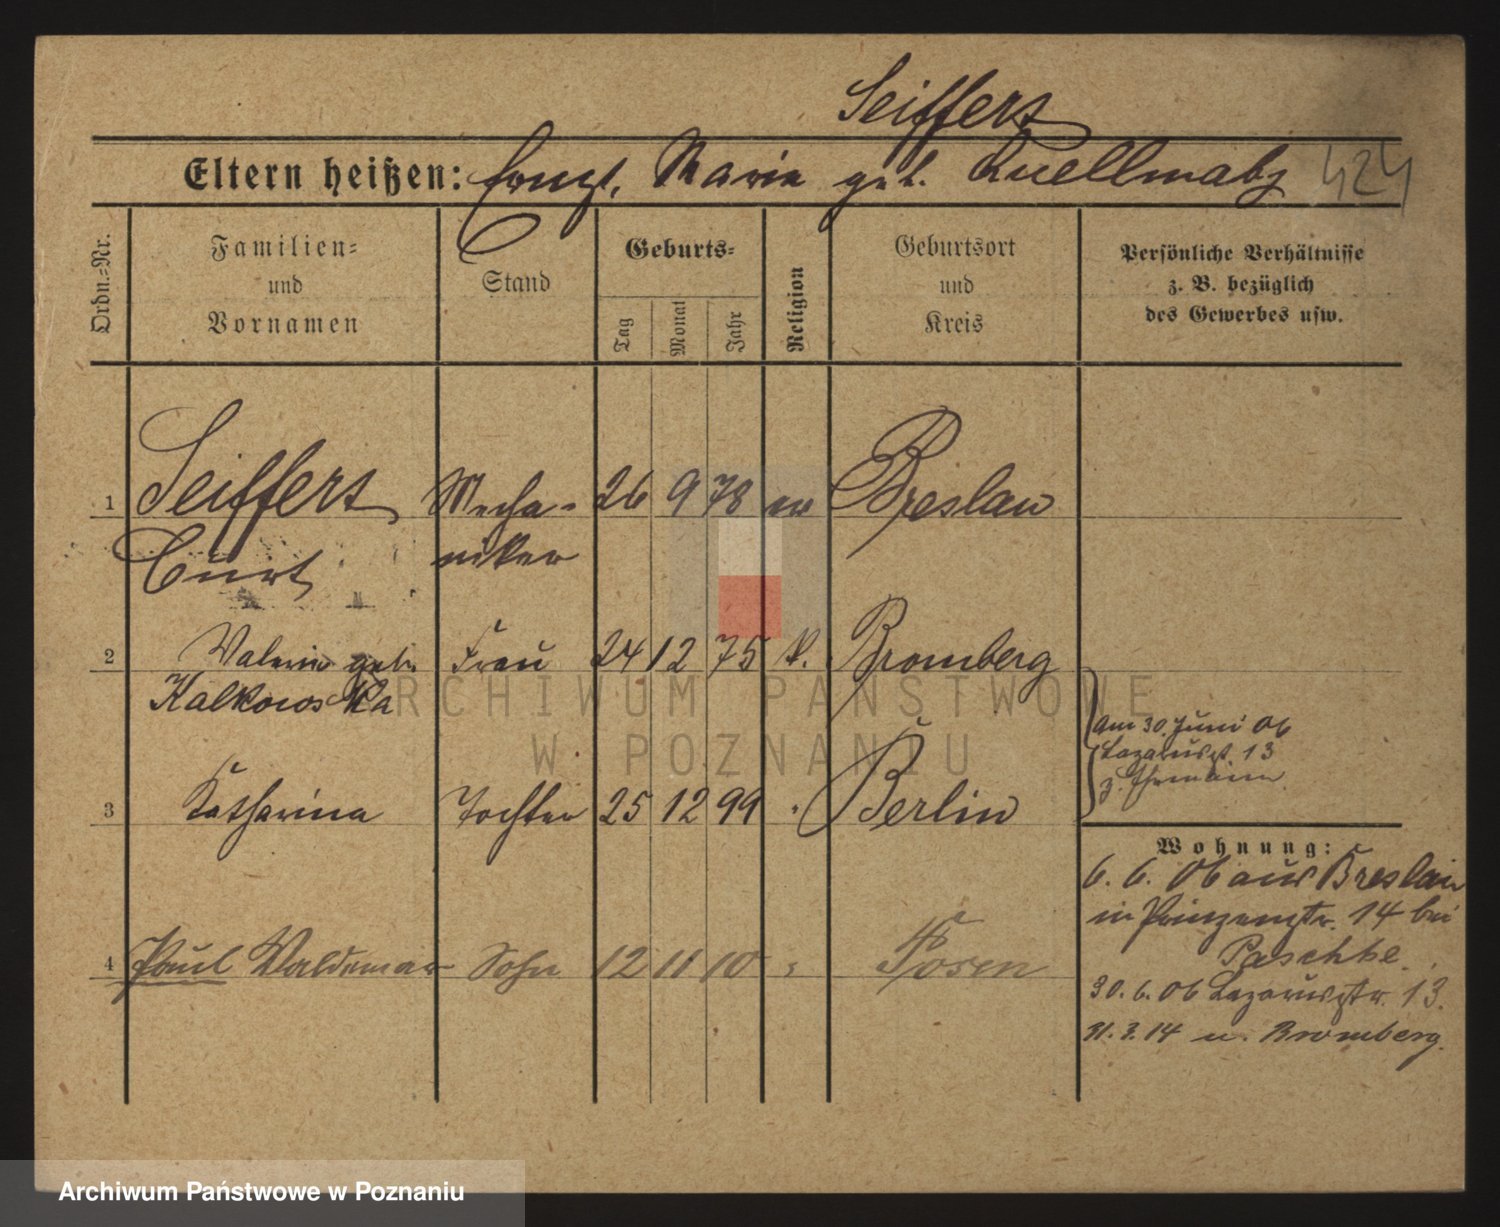 Seiffert
Eltern heißen: Ernst, Marie geb. Kuellmatz 424
Ordn.-Nr.
Familien-
und
Vornamen
Stand
Geburts-
Tag
Monat
Jahr
Religion
Geburtsort
und
Kreis
Persönliche Verhältnisse
z. B. bezüglich
des Gewerbes usw.
1 Seiffert Mecha- 26 9 78 ev Breslau
Curt niker
2 Valerie geb. Frau 24 12 75 k. Bromberg
Kalkowska
ARCHIWUM PAŃSTWOWE
W POZNANIU
Am 30. Juni 06
Lazarusst. 13
z. Ehemann
3 Katharina Tochter 25 12 99 " Berlin
Wohnung:
6. 6. 06 aus Breslau
in Prinzenstr. 14 bei
Paschke.
4 Paul Waldemar Sohn 12 11 10 " Posen
30. 6. 06 Lazarusstr. 13.
31. 3. 14 n. Bromberg.
Archiwum Państwowe w Poznaniu